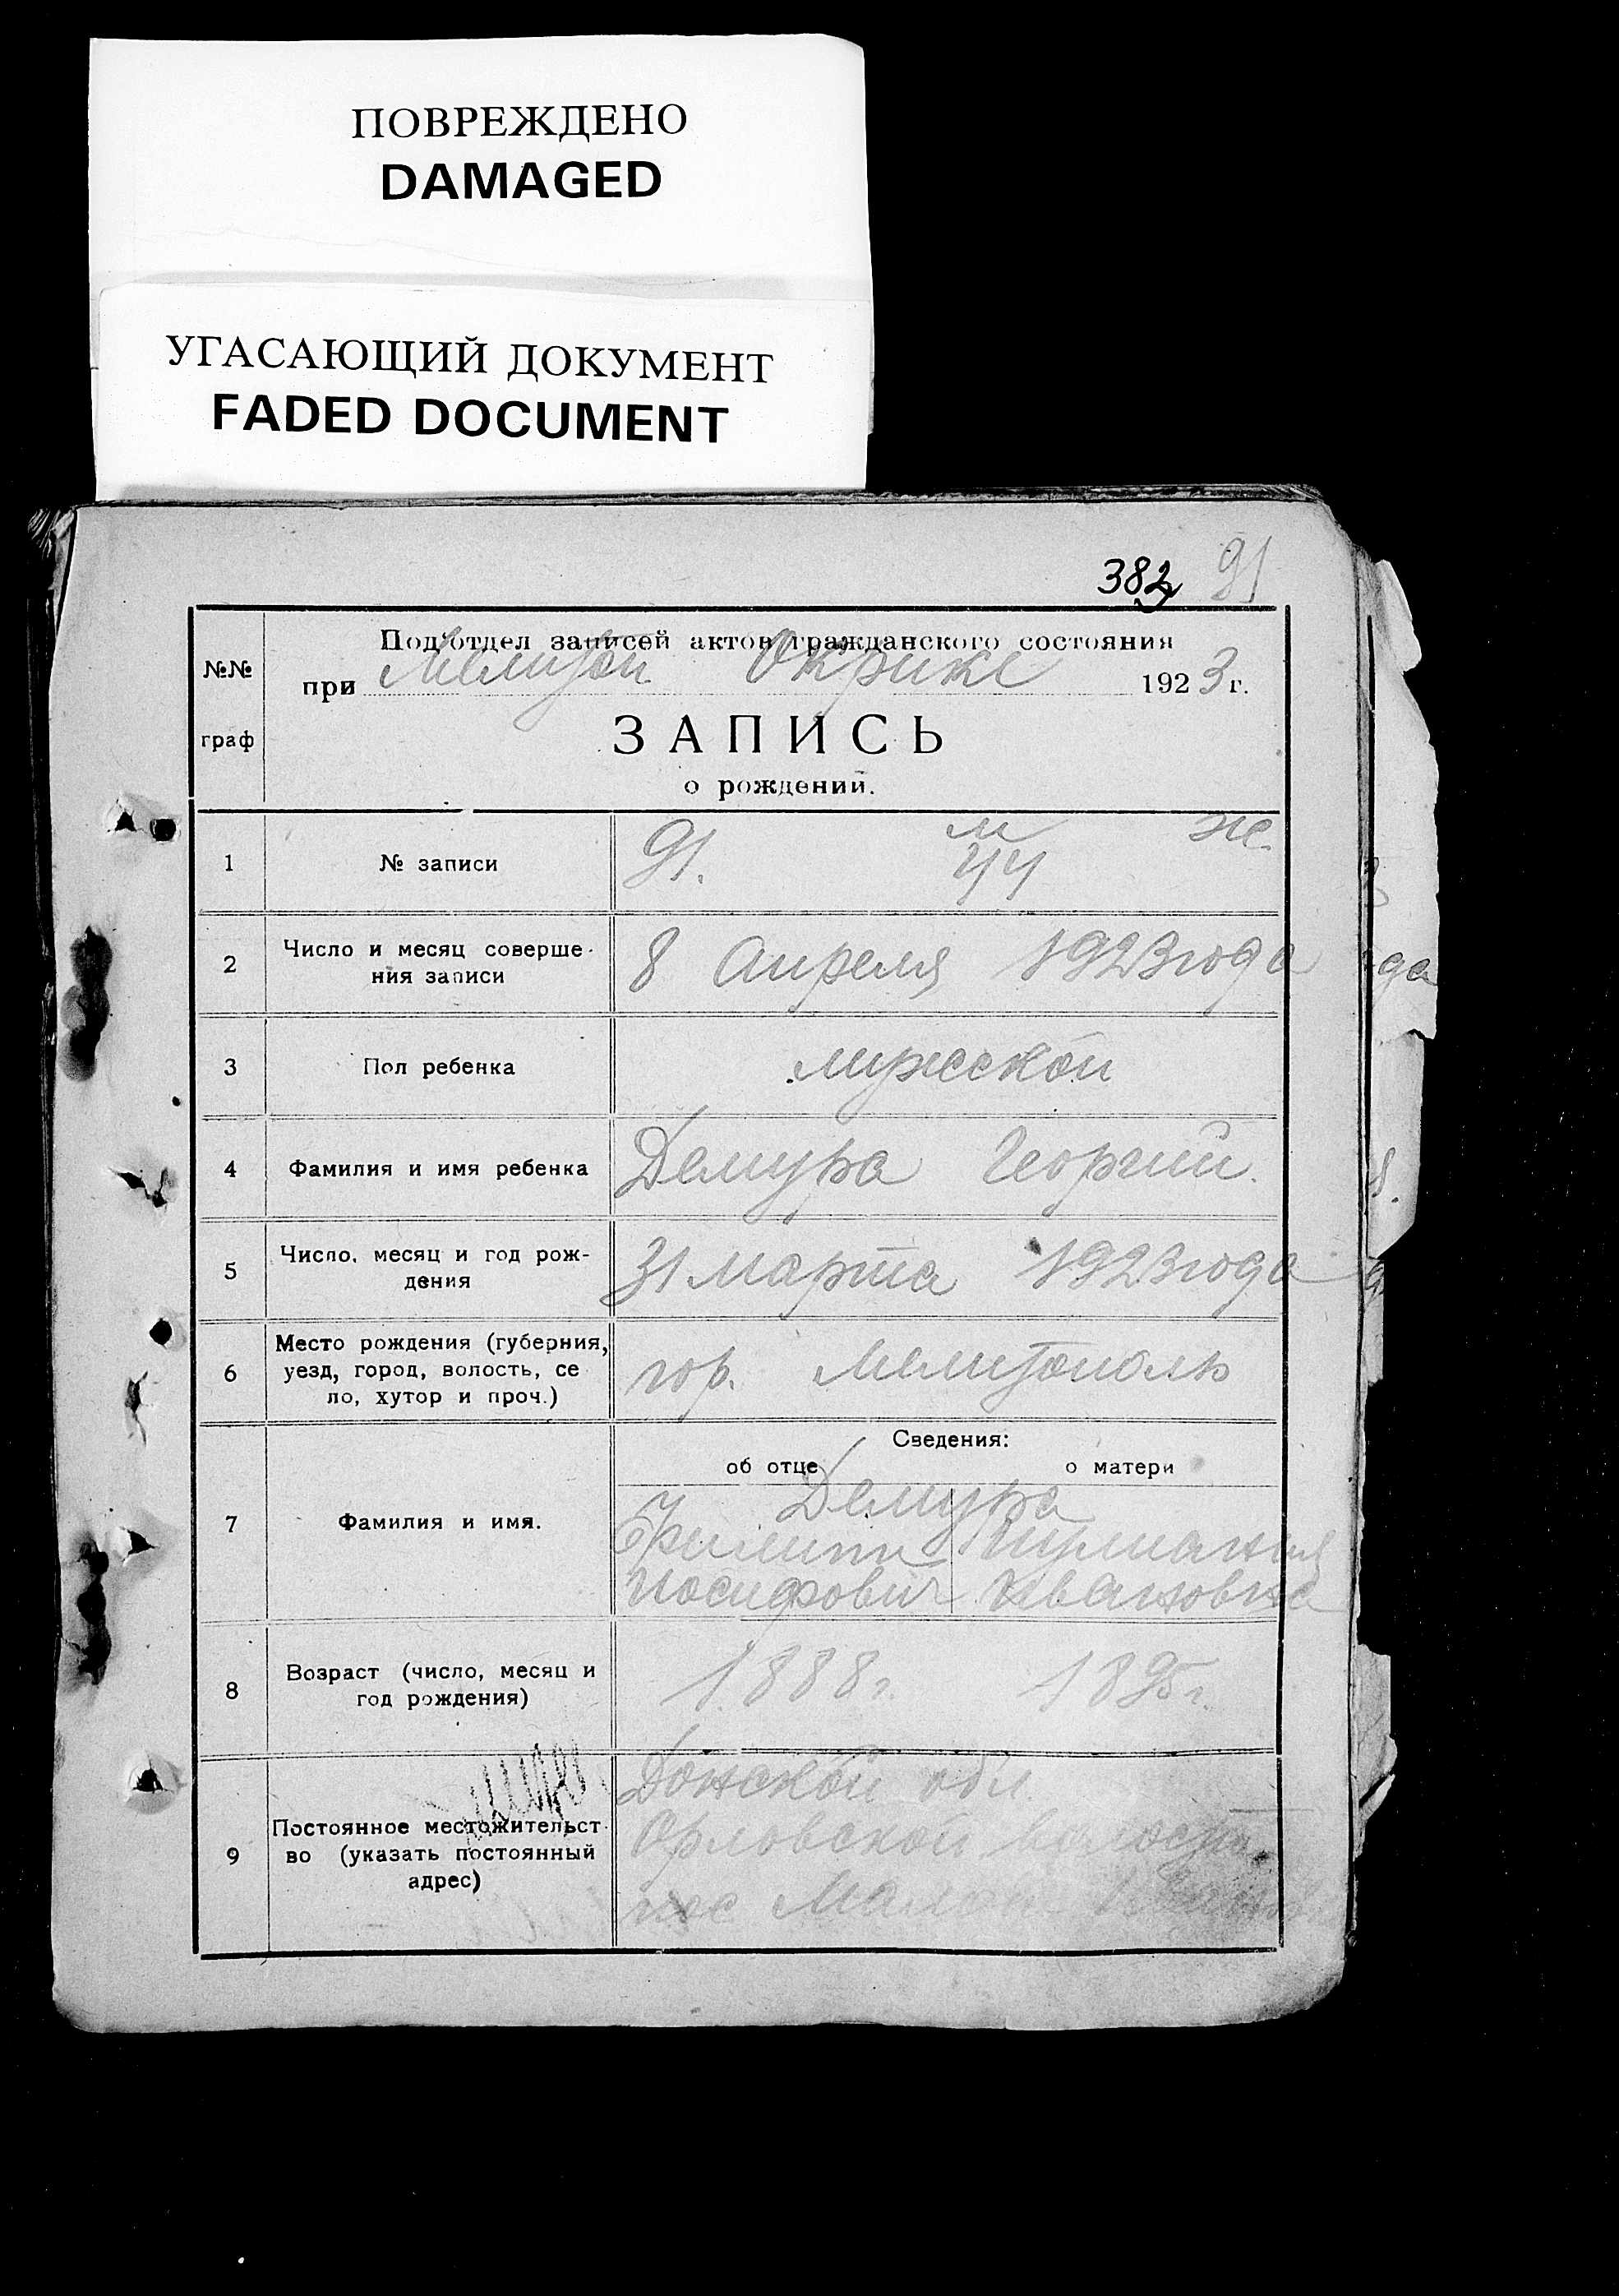 ПОВРЕЖДЕНО
DAMAGED
УГАСАЮЩИЙ ДОКУМЕНТ
FADED DOCUMENT
382 91
№№
граф
Подотдел записей актов гражданского состояния
при Мелитоп. Окрике 1923 г.
ЗАПИСЬ
о рождений.
1 № записи 91. м 44 ж.
2 Число и месяц соверше-
ния записи 8 Апреля 1923 года
3 Пол ребенка мужской
4 Фамилия и имя ребенка Демура Георгий.
5 Число, месяц и год рож-
дения 31 марта 1923 года
6 Место рождения (губерния,
уезд, город, волость, се
ло, хутор и проч.) гор. Мелитополь
Сведения:
об отце о матери
7 Фамилия и имя. Демура
Филипп
Иосифович Ивановна
8 Возраст (число, месяц и
год рождения) 1888 г. 1895 г.
9 Постоянное местожительст-
во (указать постоянный
адрес) Донской обл.
Орловской волости
пос